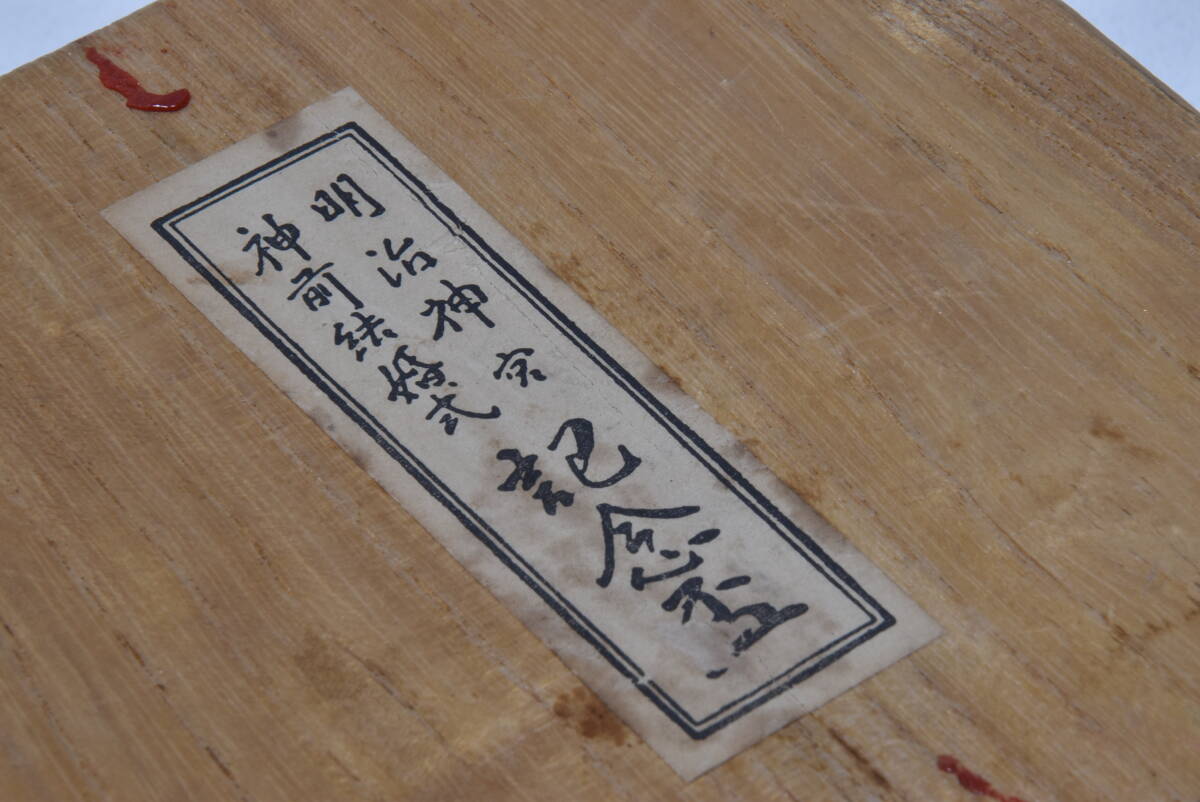 明治神宮
神前結婚式
記念盃